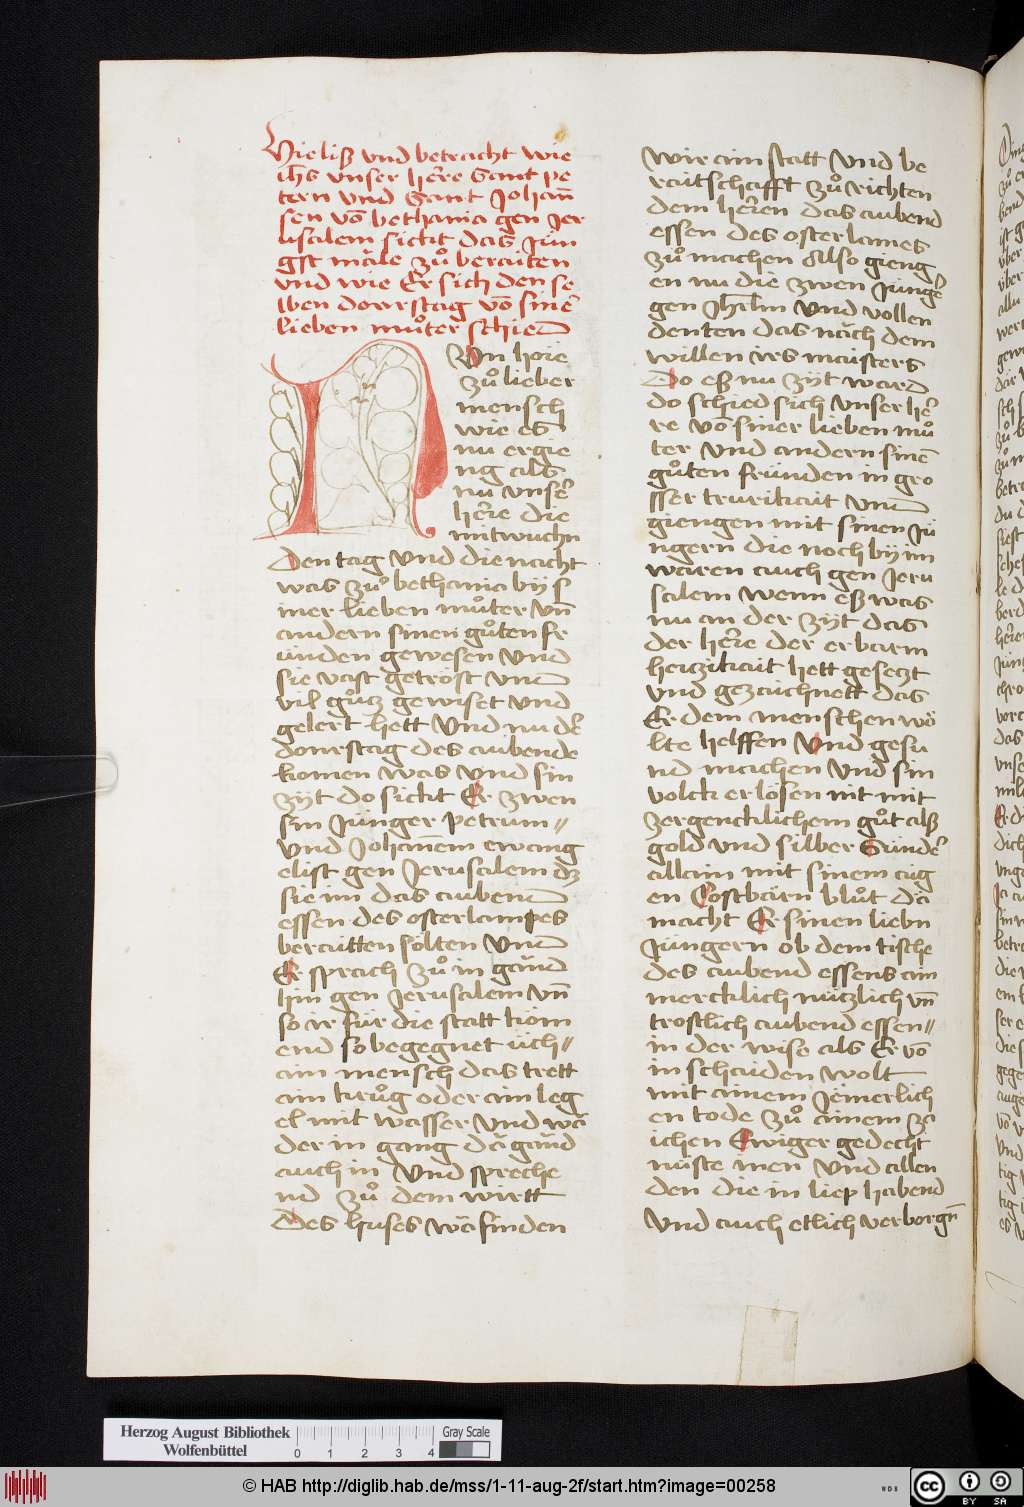 Hie liß vnd betracht wie
ih̄s vnser he᷑re Sant pe
tern vnd Sant Johan̄
sen vō bethania gen Jer
usalem sickt das Jun
gst māle zů beraiten
vnd wie Er sich den se
lben donrstag vō siner̄
lieben můter schied
Nun hőre
zů lieber
mensch
wie es
nu ergie
ng als
nu vnser̄
he᷑re die
mitwuchn
Den tag vnd die nacht
was zů bethania bÿ s
iner lieben můter vn̄
andern sinen gůten fr
ünden gewesen vnd
sie vast getröst vnd
vil gůtz gewiset vnd
gelert hett Vnd nu der̄
donrstag des aubends
komen was Vnd sin
zÿt do sickt Er zwen
sin Jünger petrum //
Vnd Johan̄em ewang
elist gen Jerusalem dz
sie im das aubend
essen des osterlampes
beraitten sölten Vnd
Er sprach zů in gānd
hin gen Jerusalem vn̄
so ir für die statt kom
end so begegnet üch //
ain mensch das trett
ain krůg oder ain leg
el mit wasser Vnd wā
der in gang dā gānd
auch in Vnd spreche
nd zů dem wirtt
Des huses wā finden
wir ain statt Vnd be
raitschafft zů richten
dem he᷑ren das aubend
essen des osterlames
zů machen Also gieng
en nu die zwen Jünger̄
gen Jhrlm̄ Vnd vollen
denten das nāch dem
willen irs maisters
Do eß nu zÿt ward
do schied sich vnser he᷑
re vō siner lieben mů
ter vnd andern sinē
gůten fründen in gro
sser trurikait vnd
giengen mit sinen Jü
ngern die noch bÿ im
waren auch gen Jeru
salem wenn eß was
nu an der zÿt das
der he᷑re der erbarm
hertzikait hett gesetzt
vnd gezaichnett das
Er dem menschen wö
lte helffen Vnd gesu
nd machen Vnd sin
volck erlösen nit mit
zergencklichem gůt alß
gold vnd silber Sunder̄
allain mit sinem aig
en Costbärn blůt Dā
macht Er sinen liebn
Jüngern ob dem tische
des aubend essens ain
mercklich nützlich vn̄
trostlich aubend essen //
in der wise als Er vō
in schaiden wolt
mit ainem Jemerlich
en tode zů ainem za
ichen Ewiger gedecht
nüste inen Vnd allen
den die in liep habend
Vnd auch etlich verborgn̄
Herzog August Bibliothek
Wolfenbüttel
0 1 2 3 4
Gray Scale
© HAB http://diglib.hab.de/mss/1-11-aug-2f/start.htm?image=00258
WDB
cc BY SA